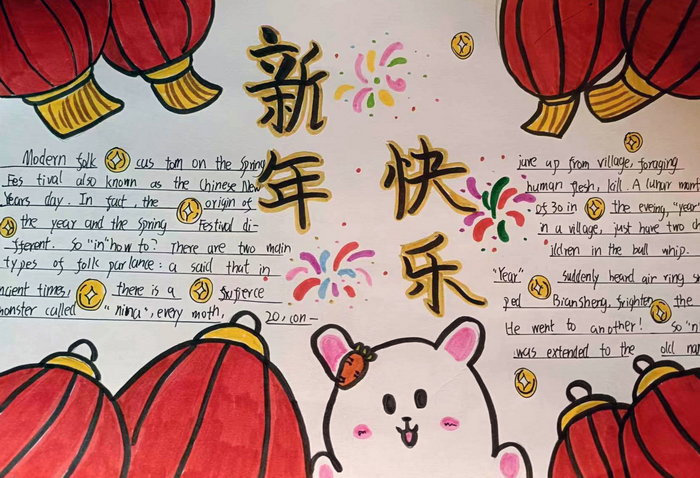 新年
快乐
Modern folk cus tom on the Spring
Fes tival also known as the Chinese New
Years day. In fact, the origin of
the year and the Spring Festival di-
fferent. so "in" how to? There are two main
types of folk parlance: a said that in
ncient times, there is a fierce
monster called "nina", every moth, 20, con-
jure up from village, foraging
human flesh, kill. A lunar
of 30 in the eveing, "year"
in a village, just have two
ildren in the bull whip.
"Year" suddenly heard air ring
ped Biansheng, frighten the
He went to another! so "n
was extended to the old